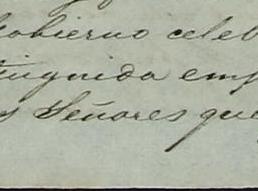 obierno celeb
tinguida emp
s Señores que